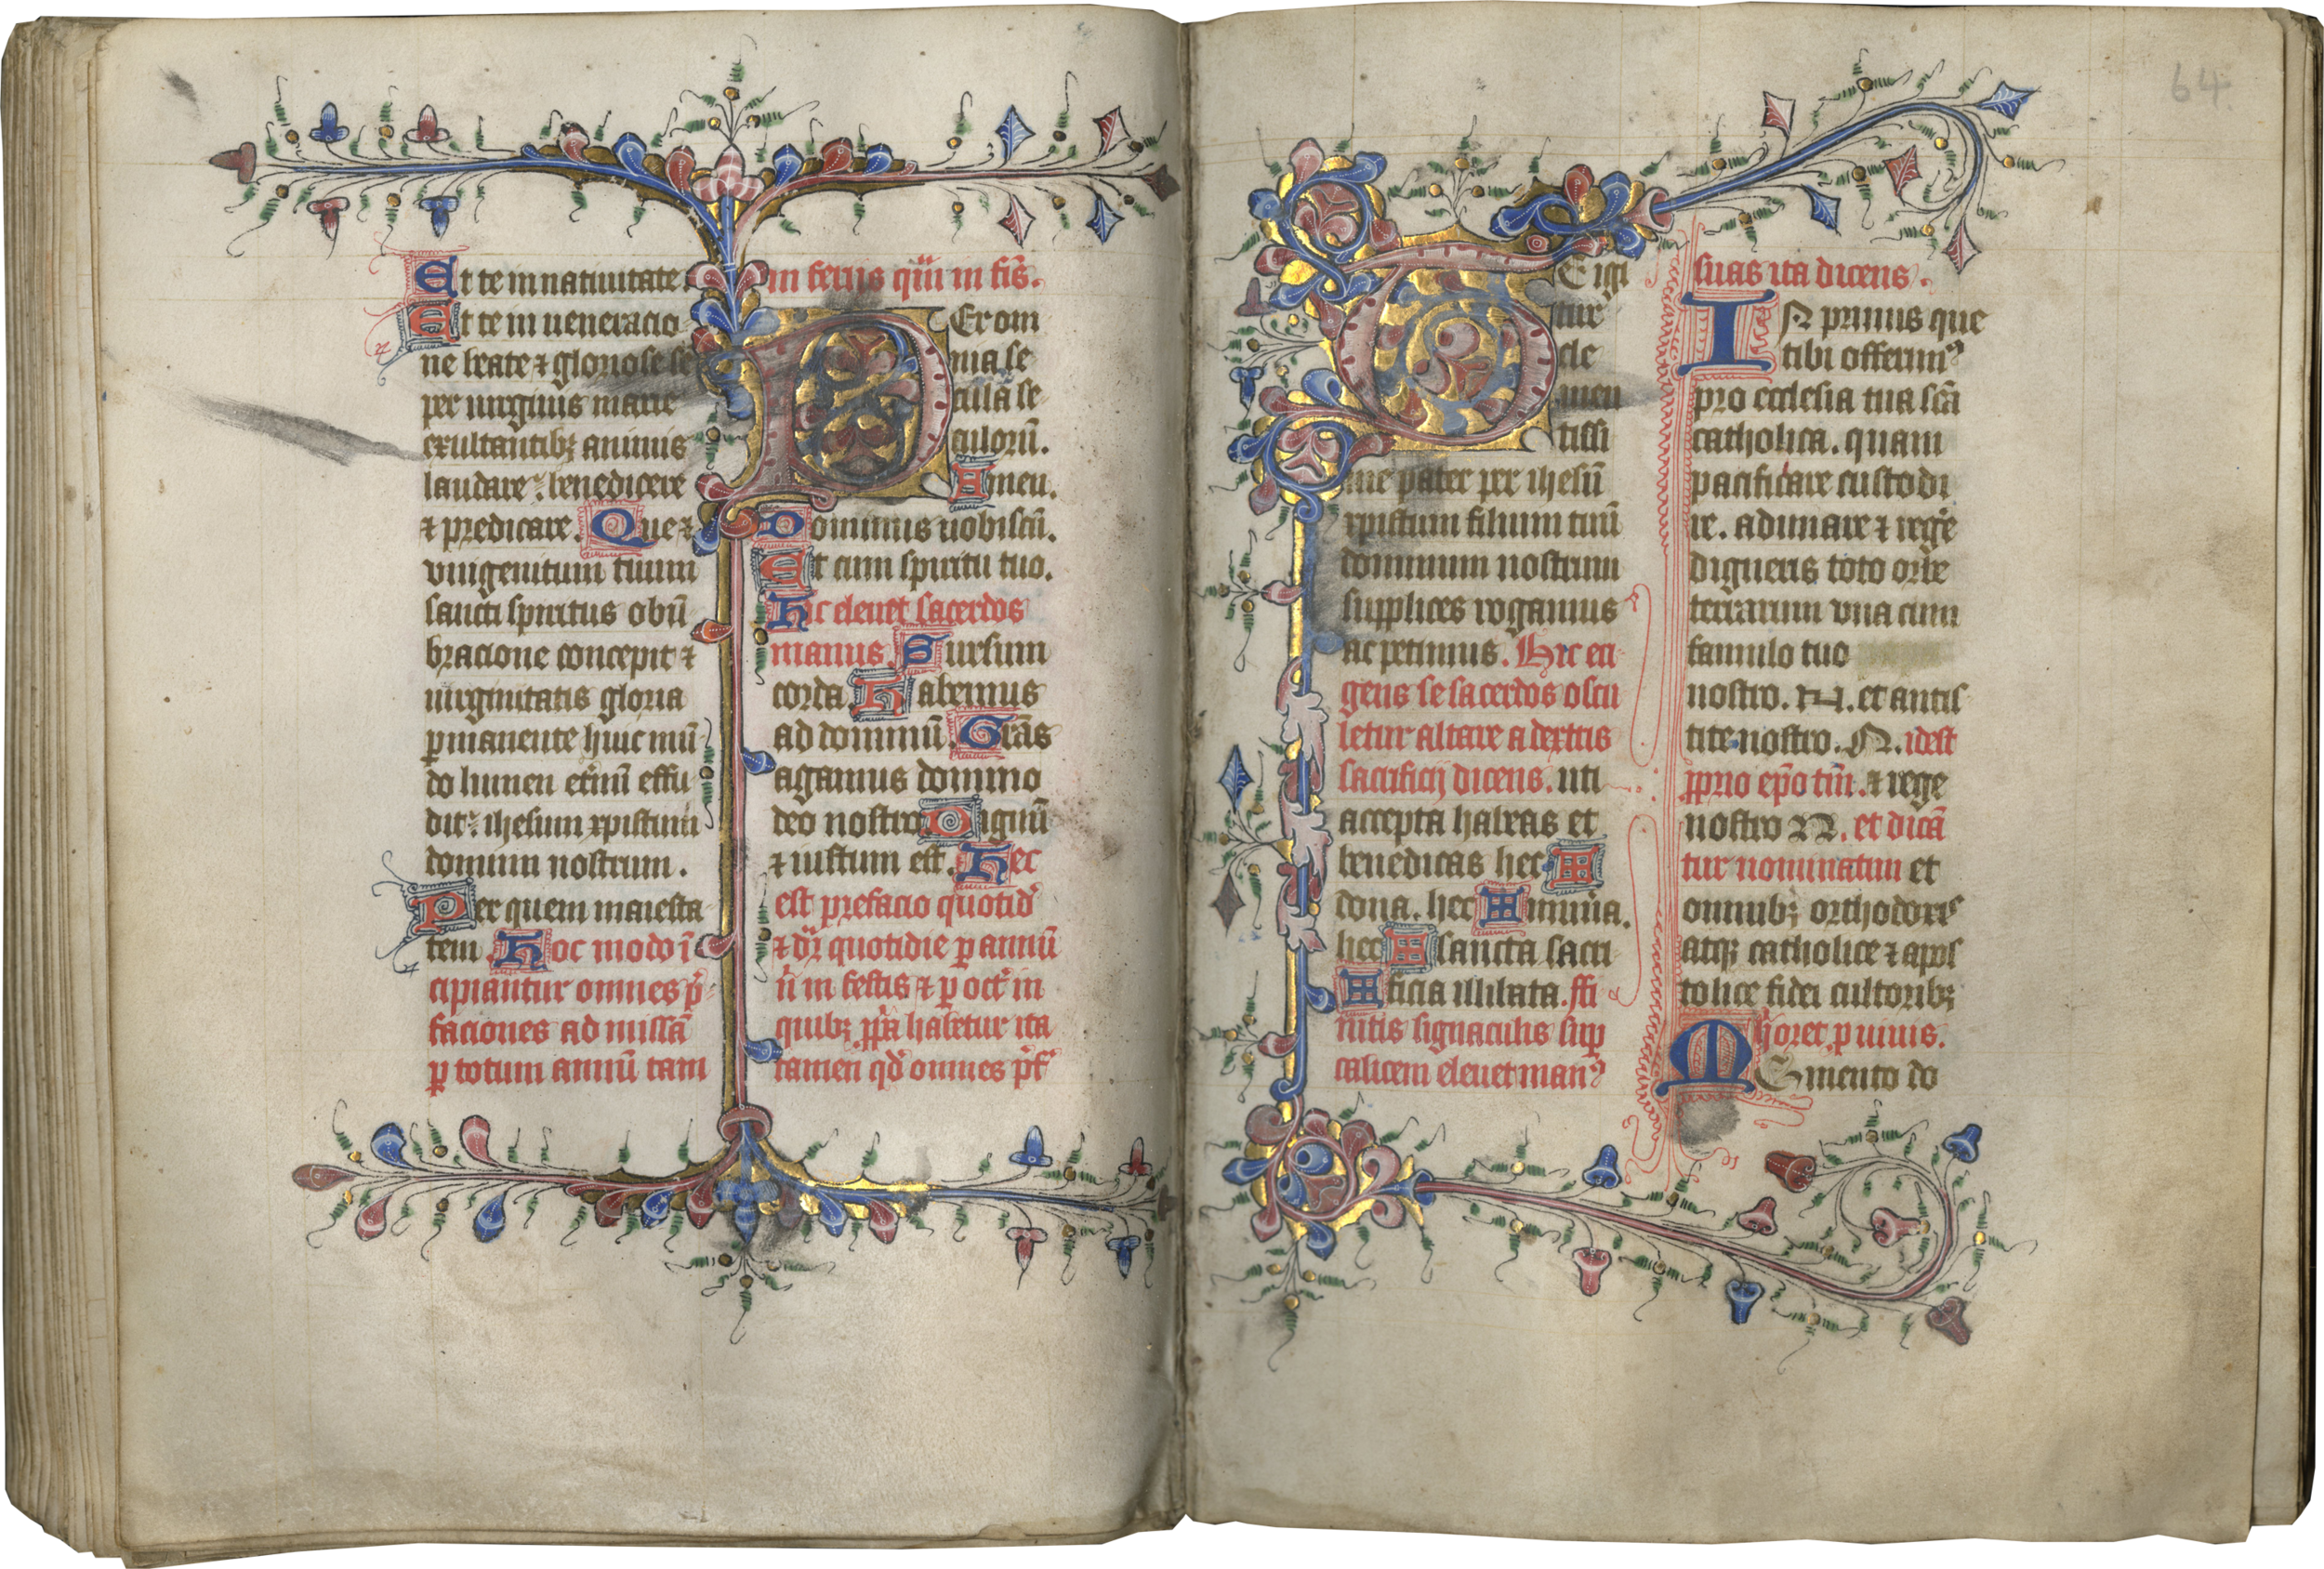 Et te in natiuitate.
Et te in ueneracio
ne beate ⁊ gloriose se
per uirginis marie
exultantibꝫ animis
laudare. benedicere
⁊ predicare. Que ⁊
vnigenitum tuum
sancti spiritus obū
bracione concepit ⁊
uirginitatis gloria
ꝑmanente huic mū
do lumen et̄nū effu
dit. ihesum xpistum
dominum nostrum.
Per quem maiesta
tem. Hoc modo ī
cipiantur omnes p̄
faciones ad missā
ꝑ totum annū tam
in feriis qͣm in fīs.
Per om
nia se
cula se
culorū.
Amen.
Dominus uobiscū.
Et cum spiritu tuo.
Hic eleuet sacerdos
manus. Sursum
corda. Habemus
ad dominū. Grās
agamus domino
deo nostro. Dignū
⁊ iustum est. Hec
est prefacio quotid̄
⁊ dr̄ quotidie ꝑ annū
n̄ in festis ⁊ ꝑ oct̄ in
quibꝫ ꝓpͥa habetur ita
tamen qd̄ omnes p̄f
64
TE igi
tur
cle
men
tissi
me pater per ihesū
xpistum filium tuū
dominum nostrum
supplices rogamus
ac petimus. Hic eri
gens se sacerdos oscu
letur altare a dextris
sacrificij dicens. uti
accepta habeas et
benedicas hec ✠
dona. hec ✠ mun̄a.
hec ✠ sancta sacri
✠ ficia illibata. ffi
nitis signaculis sup
calicem eleuet manꝰ
suas ita dicens.
IN primis que
tibi offerimꝰ
pro ecclesia tua scā
catholica. quam
pacificare custodi
re. adunare ⁊ reg̓e
digneris toto orbe
terrarum vna cum
famulo tuo
nostro. N. et antis
tite nostro. N. idest
ꝓprio ep̄o tm̄. ⁊ rege
nostro N. et dicā
tur nominatim et
omnibꝫ orthodoxis
atqꝫ catholice ⁊ apos
tolice fidei cultoribꝫ
hͥ oret ꝑ uiuis.
MEmento do